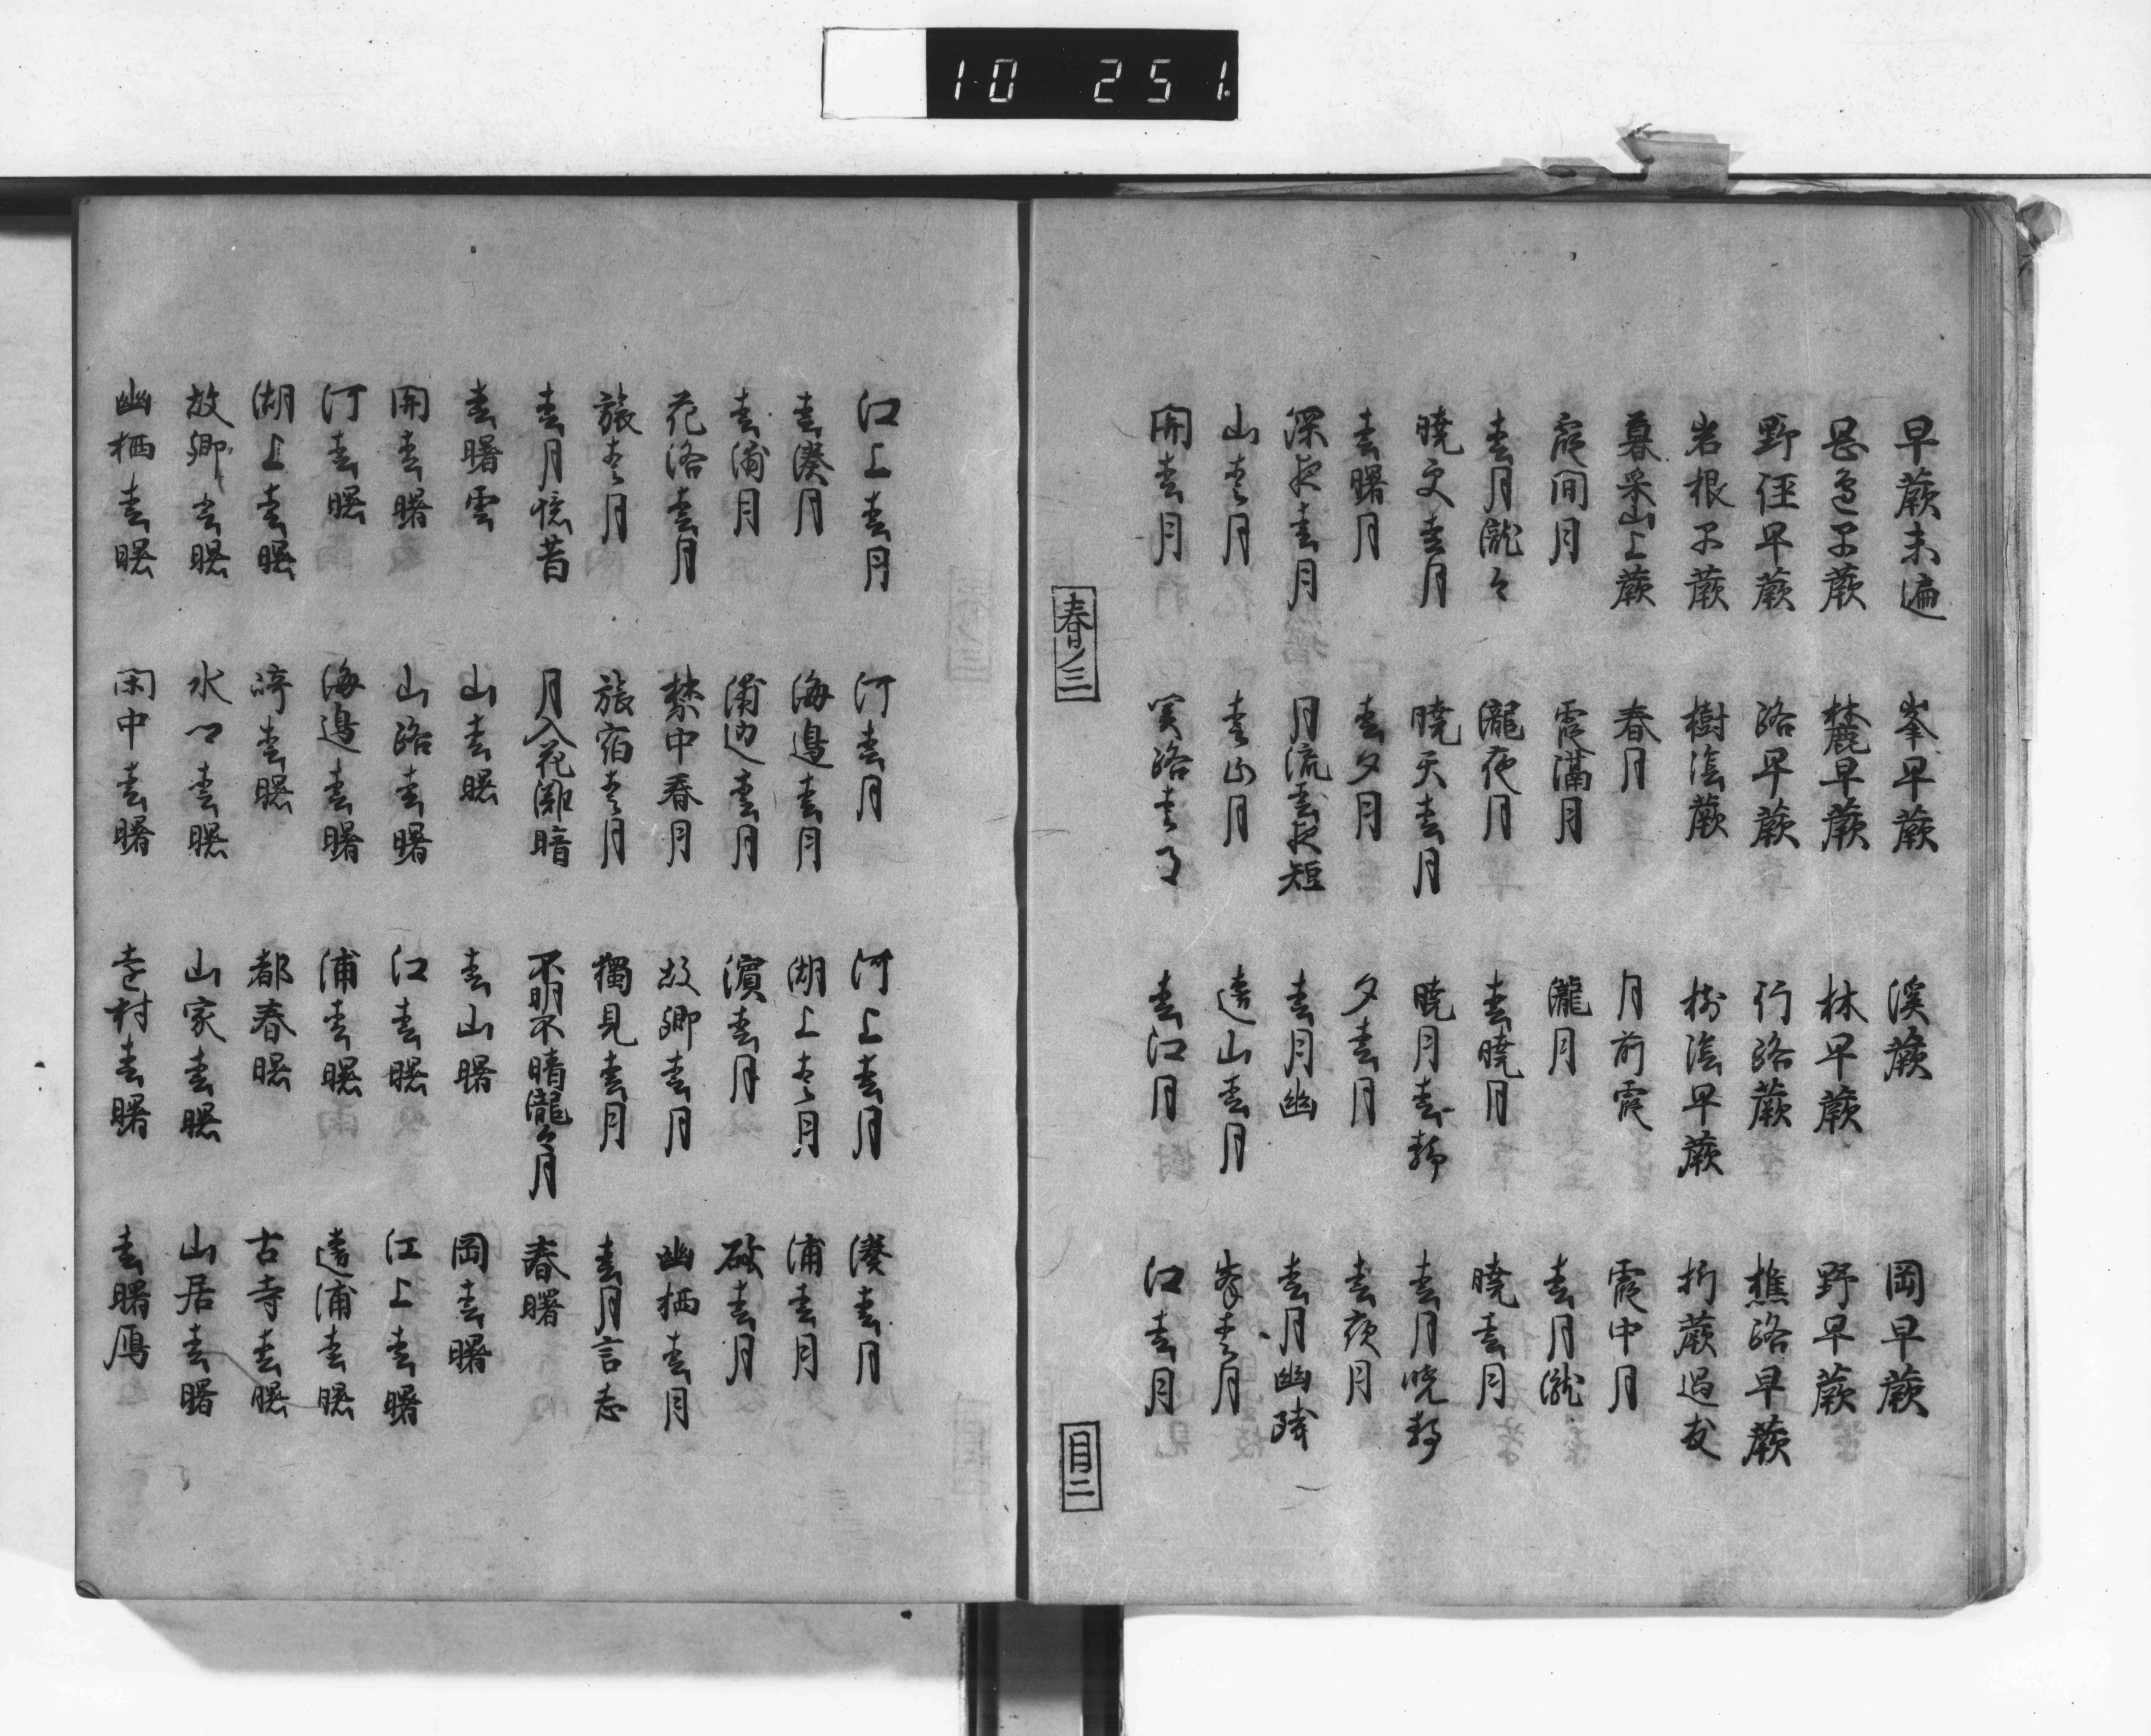 10 251
早蕨未遍 峯早蕨 溪蕨 岡早蕨
早蕨 麓早蕨 林早蕨 野早蕨
野徑早蕨 路早蕨 行路蕨 樵路早蕨
岩根早蕨 樹陰蕨 樹陰早蕨 折蕨過友
暮采山上蕨 春月 月前霞 霞中月
霞間月 霞満月 朧月 春月朧
春月朧々 朧夜月 春暁月 暁春月
暁更春月 暁天春月 暁月春静 春月暁静
春曙月 春夕月 夕春月 春夜月
深夜春月 月流春夜短 春月幽 春月幽残
山春月 春山月 遠山春月 峯春月
関春月 関路春月 春江月 江春月
春ノ三
目二
江上春月 河春月 河上春月 湊春月
春湊月 海邉春月 湖上春月 浦春月
春浦月 浦辺春月 濱春月 磯春月
花洛春月 禁中春月 故郷春月 幽栖春月
旅春月 旅宿春月 獨見春月 春月言志
春月憶昔 月入花灘暗 不明不暗朧々月 春曙
春曙雲 山春曙 春山曙 岡春曙
関春曙 山路春曙 江春曙 江上春曙
河春曙 海邉春曙 浦春曙 遠浦春曙
湖上春曙 春曙 都春曙 古寺春曙
故郷春曙 水郷春曙 山家春曙 山居春曙
幽栖春曙 閑中春曙 遠村春曙 春曙鴈